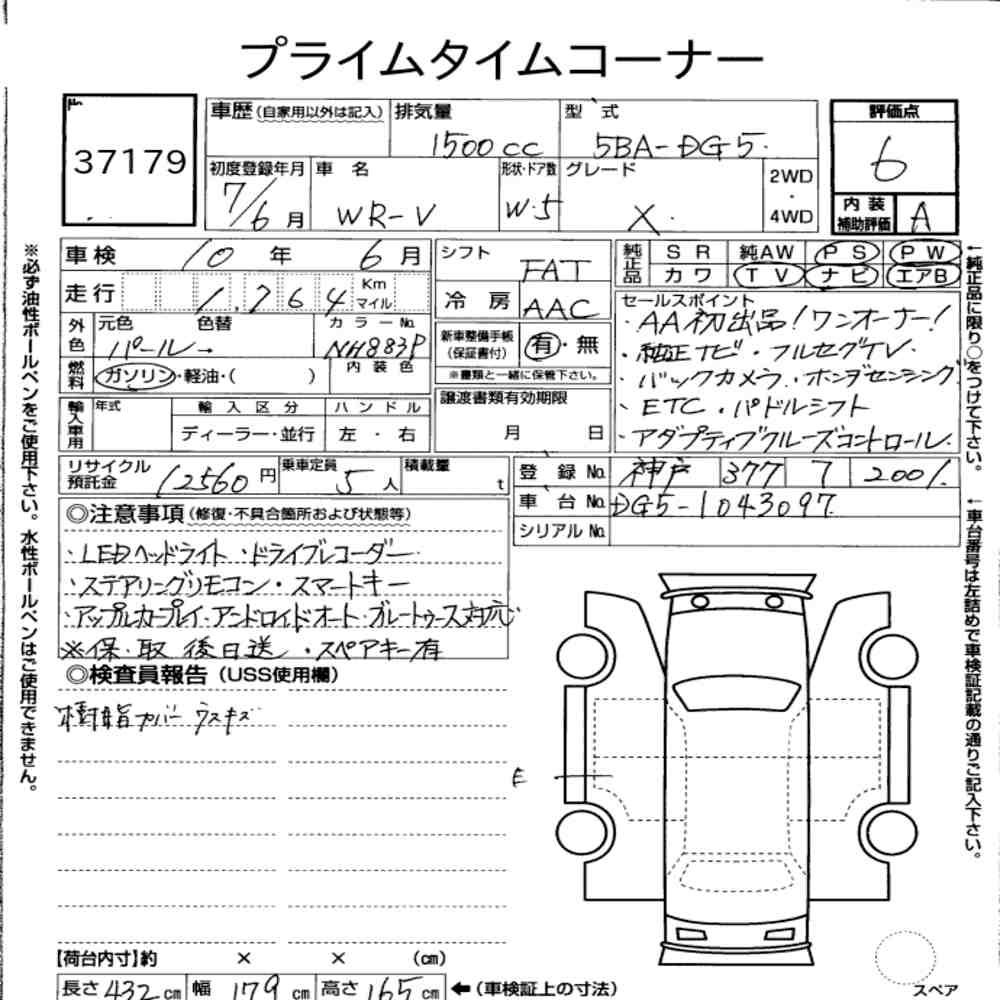 プライムタイムコーナー
37179
車歴 (自家用以外は記入) 排気量 型式
1500cc 5BA-DG5
評価点
6
内装補助評価 A
初度登録年月 車名 形状・ドア数 グレード
7/6月 WR-V W・5 X 2WD・4WD
車検 10年 6月
走行 1,764 Km マイル
シフト FAT
冷房 AAC
純正品 SR 純AW PS PW
カワ TV ナビ エアB
外色 元色 色替 カラーNo.
パール→ NH883P
内装色
燃料 ガソリン・軽油・( )
新車整備手帳(保証書付) 有・無
※書類と一緒に保管下さい。
セールスポイント
・AA初出品!ワンオーナー!
・純正ナビ・フルセグTV
・バックカメラ・ホンダセンシング
・ETC・パドルシフト
・アダプティブクルーズコントロール
輸入車用 年式 輸入区分 ハンドル
ディーラー・並行 左・右
譲渡書類有効期限
月 日
リサイクル預託金 12560円 乗車定員 5人 積載量 t
登録No. 神戸 377 7 2001
車台No. DG5-1043097
シリアルNo.
◎注意事項 (修復・不具合箇所および状態等)
・LEDヘッドライト・ドライブレコーダー
・ステアリングリモコン・スマートキー
・アップルカープレイ・アンドロイドオート・ブルートゥース対応
※保・取 後日送・スペアキー有
◎検査員報告 (USS使用欄)
樹脂カバー ウスキズ
E
【荷台内寸】約 × × (cm)
長さ 432cm 幅 179cm 高さ 165cm ←(車検証上の寸法)
スペア
※必ず油性ボールペンをご使用下さい。水性ボールペンはご使用できません。
←純正品に限り○をつけて下さい。
←車台番号は左詰めで車検証記載の通りご記入下さい。